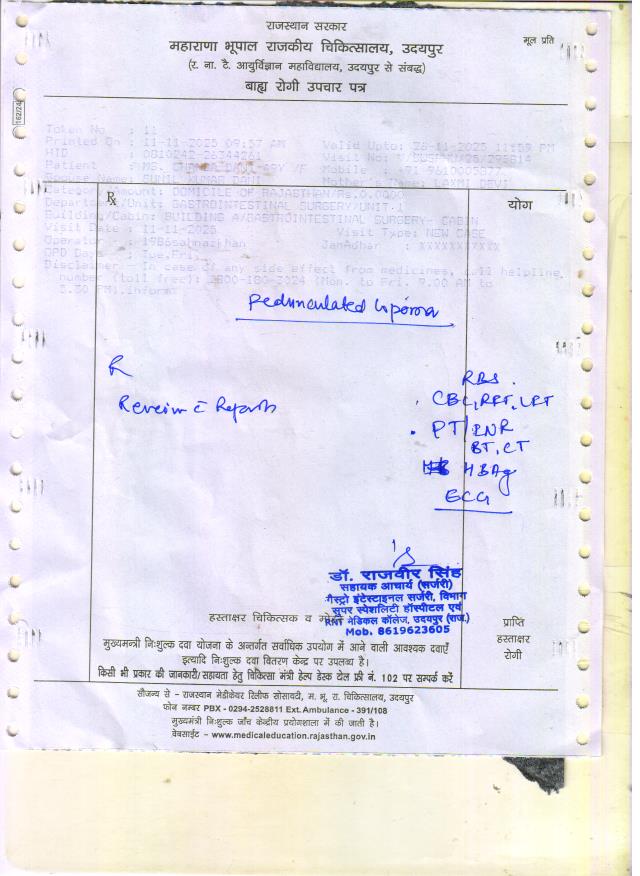 राजस्थान सरकार
महाराणा भूपाल राजकीय चिकित्सालय, उदयपुर
मूल प्रति
(र. ना. टै. आयुर्विज्ञान महाविद्यालय, उदयपुर से संबद्ध)
बाह्य रोगी उपचार पत्र
162/24
Token No : 11
Printed On : 11-11-2025 09:57 AM Valid Upto: 26-11-2025 11:59 PM
HID : Visit No:
Patient : Mobile :
LAXMI DEVI
Category/Amount: DOMICILE OF RAJASTHAN/Rs.0.0000
Department/Unit: GASTROINTESTINAL SURGERY/UNIT.1
Building/Cabin: BUILDING A/GASTROINTESTINAL SURGERY- CABIN
Visit Date : 11-11-2025 Visit Type: NEW CASE
Operator : JanAdhar :
OPD Days : Tue,Fri,
Disclaimer : In case of any side effect from medicines, call helpline
number (toll free): (Mon. to Fri. 9.00 AM to
PM).inform
℞
योग
Pedunculated lipoma
R
Review c̄ Reports
RBS.
CBC, RFT, LFT
PT/INR
BT, CT
HBAg
ECG
डॉ. राजवीर सिंह
सहायक आचार्य (सर्जरी)
गैस्ट्रो इंटेस्टाइनल सर्जरी, विभाग
सुपर स्पेशलिटी हॉस्पीटल एवं
हस्ताक्षर चिकित्सक व
RNT मेडिकल कॉलेज, उदयपुर (राज.)
Mob. 8619623605
प्राप्ति
हस्ताक्षर
रोगी
मुख्यमन्त्री निःशुल्क दवा योजना के अन्तर्गत सर्वाधिक उपयोग में आने वाली आवश्यक दवाएँ
इत्यादि निःशुल्क दवा वितरण केन्द्र पर उपलब्ध है।
किसी भी प्रकार की जानकारी/सहायता हेतु चिकित्सा मंत्री हेल्प डेस्क टोल फ्री नं. 102 पर सम्पर्क करें
सौजन्य से - राजस्थान मेडीकेयर रिलीफ सोसायटी, म. भू. रा. चिकित्सालय, उदयपुर
फोन नम्बर PBX - 0294-2528811 Ext. Ambulance - 391/108
मुख्यमंत्री निःशुल्क जाँच केन्द्रीय प्रयोगशाला में की जाती है।
वेबसाईट - www.medicaleducation.rajasthan.gov.in